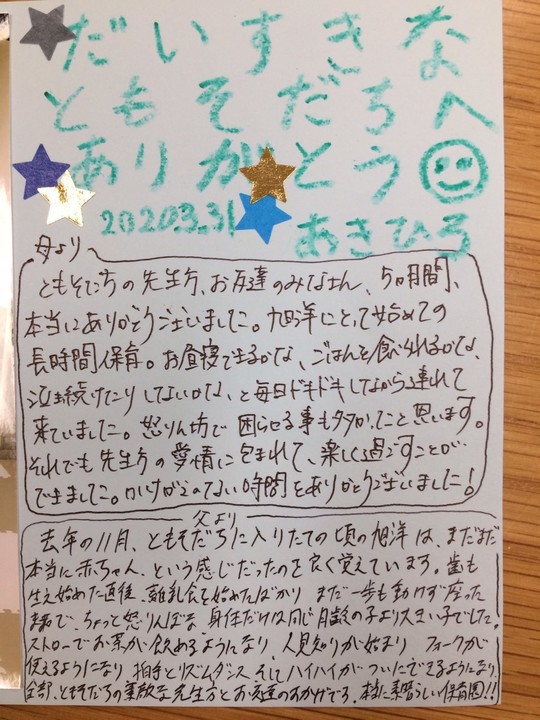 だいすきな
ともそだちへ
ありがとう
2020.3.31
あきひろ
母より
ともそだちの先生方、お友達のみなさん、5ヵ月間、
本当にありがとうございました。旭洋にとって始めての
長時間保育。お昼寝できるかな、ごはんを食べられるかな、
泣き続けたりしないかな、と毎日ドキドキしながら連れて
来ていました。怒りん坊で困らせる事も多かったことと思います。
それでも先生方の愛情に包まれて、楽しく過ごすことが
できました。かけがえのない時間をありがとうございました!
父より
去年の11月、ともそだちに入りたての頃の旭洋は、まだまだ
本当に赤ちゃん、という感じだったのを良く覚えています。歯も
生え始めた直後、離乳食を始めたばかり まだ一歩も動けず座った
ままで、ちょっと怒りんぼな、身体だけは同じ月齢の子より大きい子でした。
ストローでお茶が飲めるようになり、人見知りが始まり フォークが
使えるようになり 拍手とリズムダンス、そしてハイハイがついにできるようになり、
全部、ともそだちの素敵な先生方とお友達のおかげです。本当に素晴らしい保育園!!